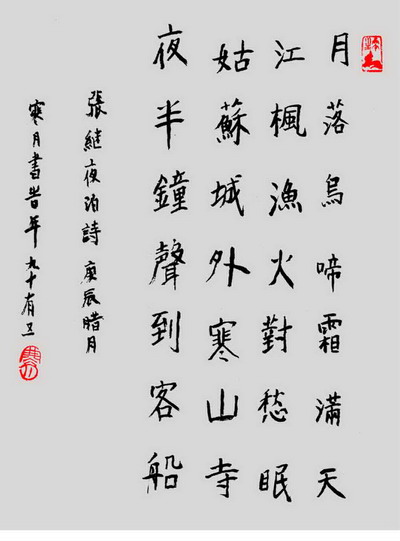 月落烏啼霜滿天
江楓漁火對愁眠
姑蘇城外寒山寺
夜半鐘聲到客船
張繼夜泊詩 庚辰腊月
寒月書 昔年九十有五